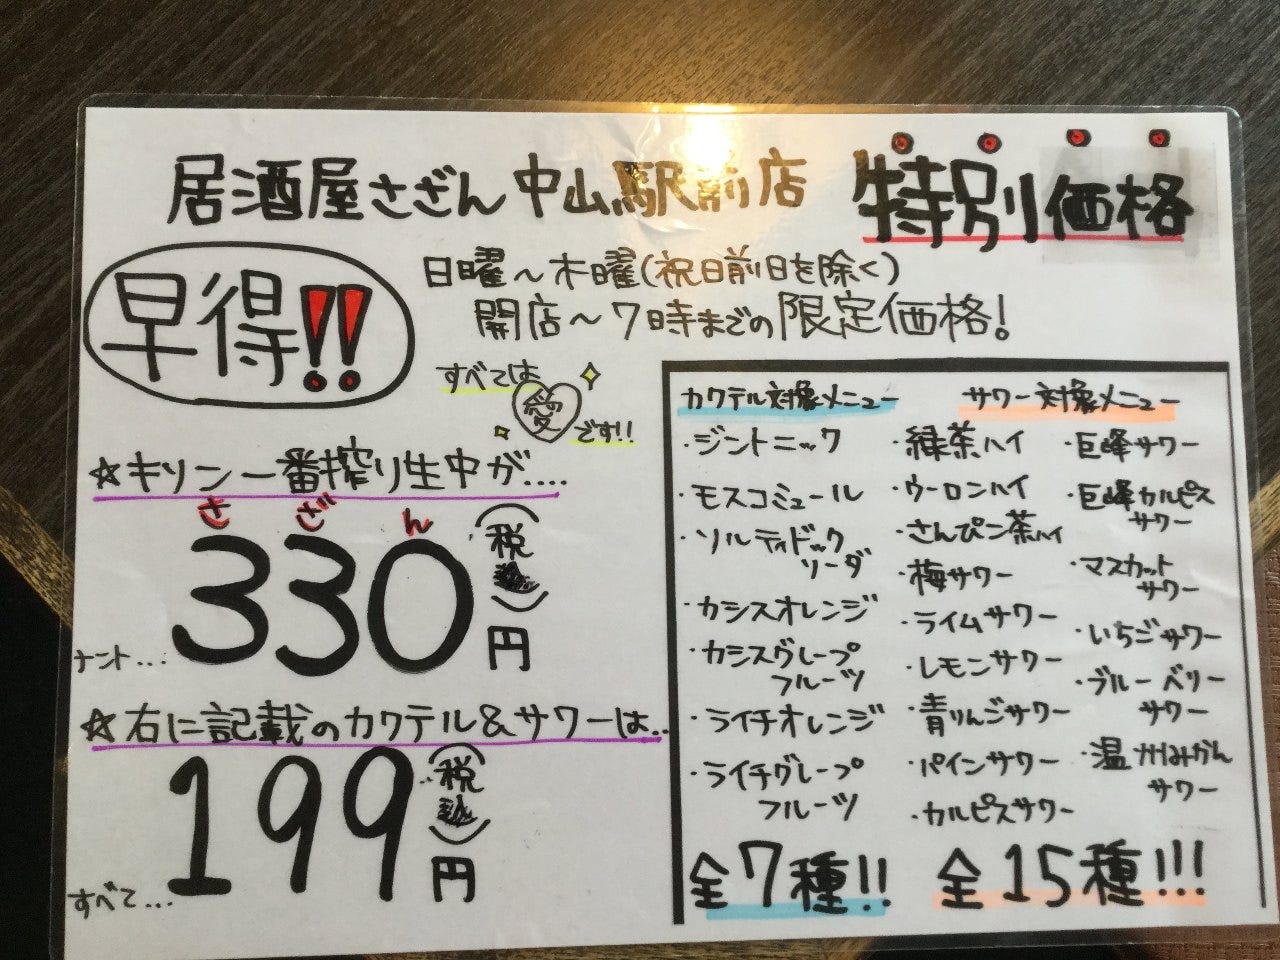 居酒屋さざん中山駅前店 特別価格
早得!!
日曜～木曜(祝日前日を除く)
開店～7時までの限定価格!
すべては
愛
です!!
☆キリン一番搾り生中が....
さざん
ナント...330(税込)円
☆右に記載のカクテル&サワーは..
すべて...199(税込)円
カクテル対象メニュー
・ジントニック
・モスコミュール
・ソルティドック
ソーダ
・カシスオレンジ
・カシスグレープ
フルーツ
・ライチオレンジ
・ライチグレープ
フルーツ
全7種!!
サワー対象メニュー
・緑茶ハイ
・ウーロンハイ
・さんぴん茶ハイ
・梅サワー
・ライムサワー
・レモンサワー
・青りんごサワー
・パインサワー
・カルピスサワー
・巨峰サワー
・巨峰カルピス
サワー
・マスカット
サワー
・いちごサワー
・ブルーベリー
サワー
・温州みかん
サワー
全15種!!!